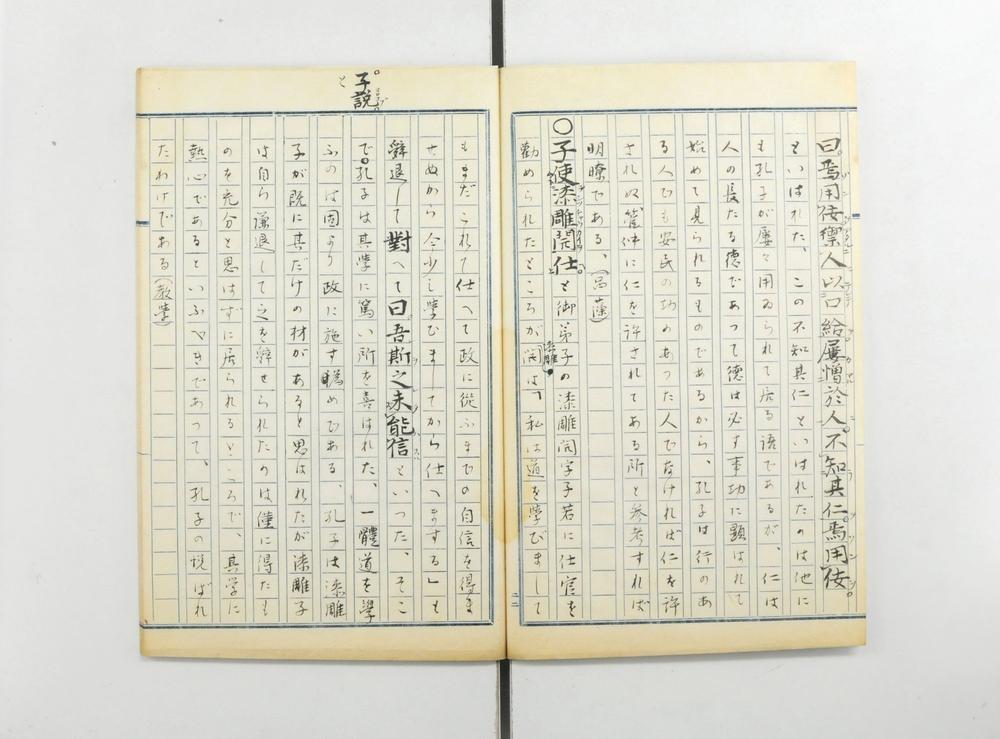 曰。焉用佞。禦人以口給。屢憎於人。不知其仁。焉用佞。
といはれた、この不知其仁といはれたのは他に
も孔子が屢々用ゐられて居る語であるが、仁は
人の長たる德であつて德は必ず事功に顯はれて
始めて見られるものであるから、孔子は行のあ
る人でも安民の功のあつた人でなければ仁を許
されぬ管仲に仁を許されてある所と參考すれば
明瞭である、
〇子使漆雕開仕。と御弟子の漆雕開字子若に仕官を
勸められたところが漆雕開は「私は道を學びまして
もまだこれで仕へて政に從ふまでの自信を得ま
せぬから今少し學びましてから仕へまする」と
辭退して對へて曰吾斯之未能信といつた、そこ
子說。と
で。孔子は其學に篤い所を喜ばれた、一體道を學
ふのは固より政に施す爲めである、孔子は漆雕
子が既に其だけの材があると思はれたが漆雕子
は自ら謙退して之を辭せられたのは僅に得たも
のを充分と思はずに居られるところで、其學に
熱心であるといふべきであつて、孔子の悅ばれ
たわけである(敎學)